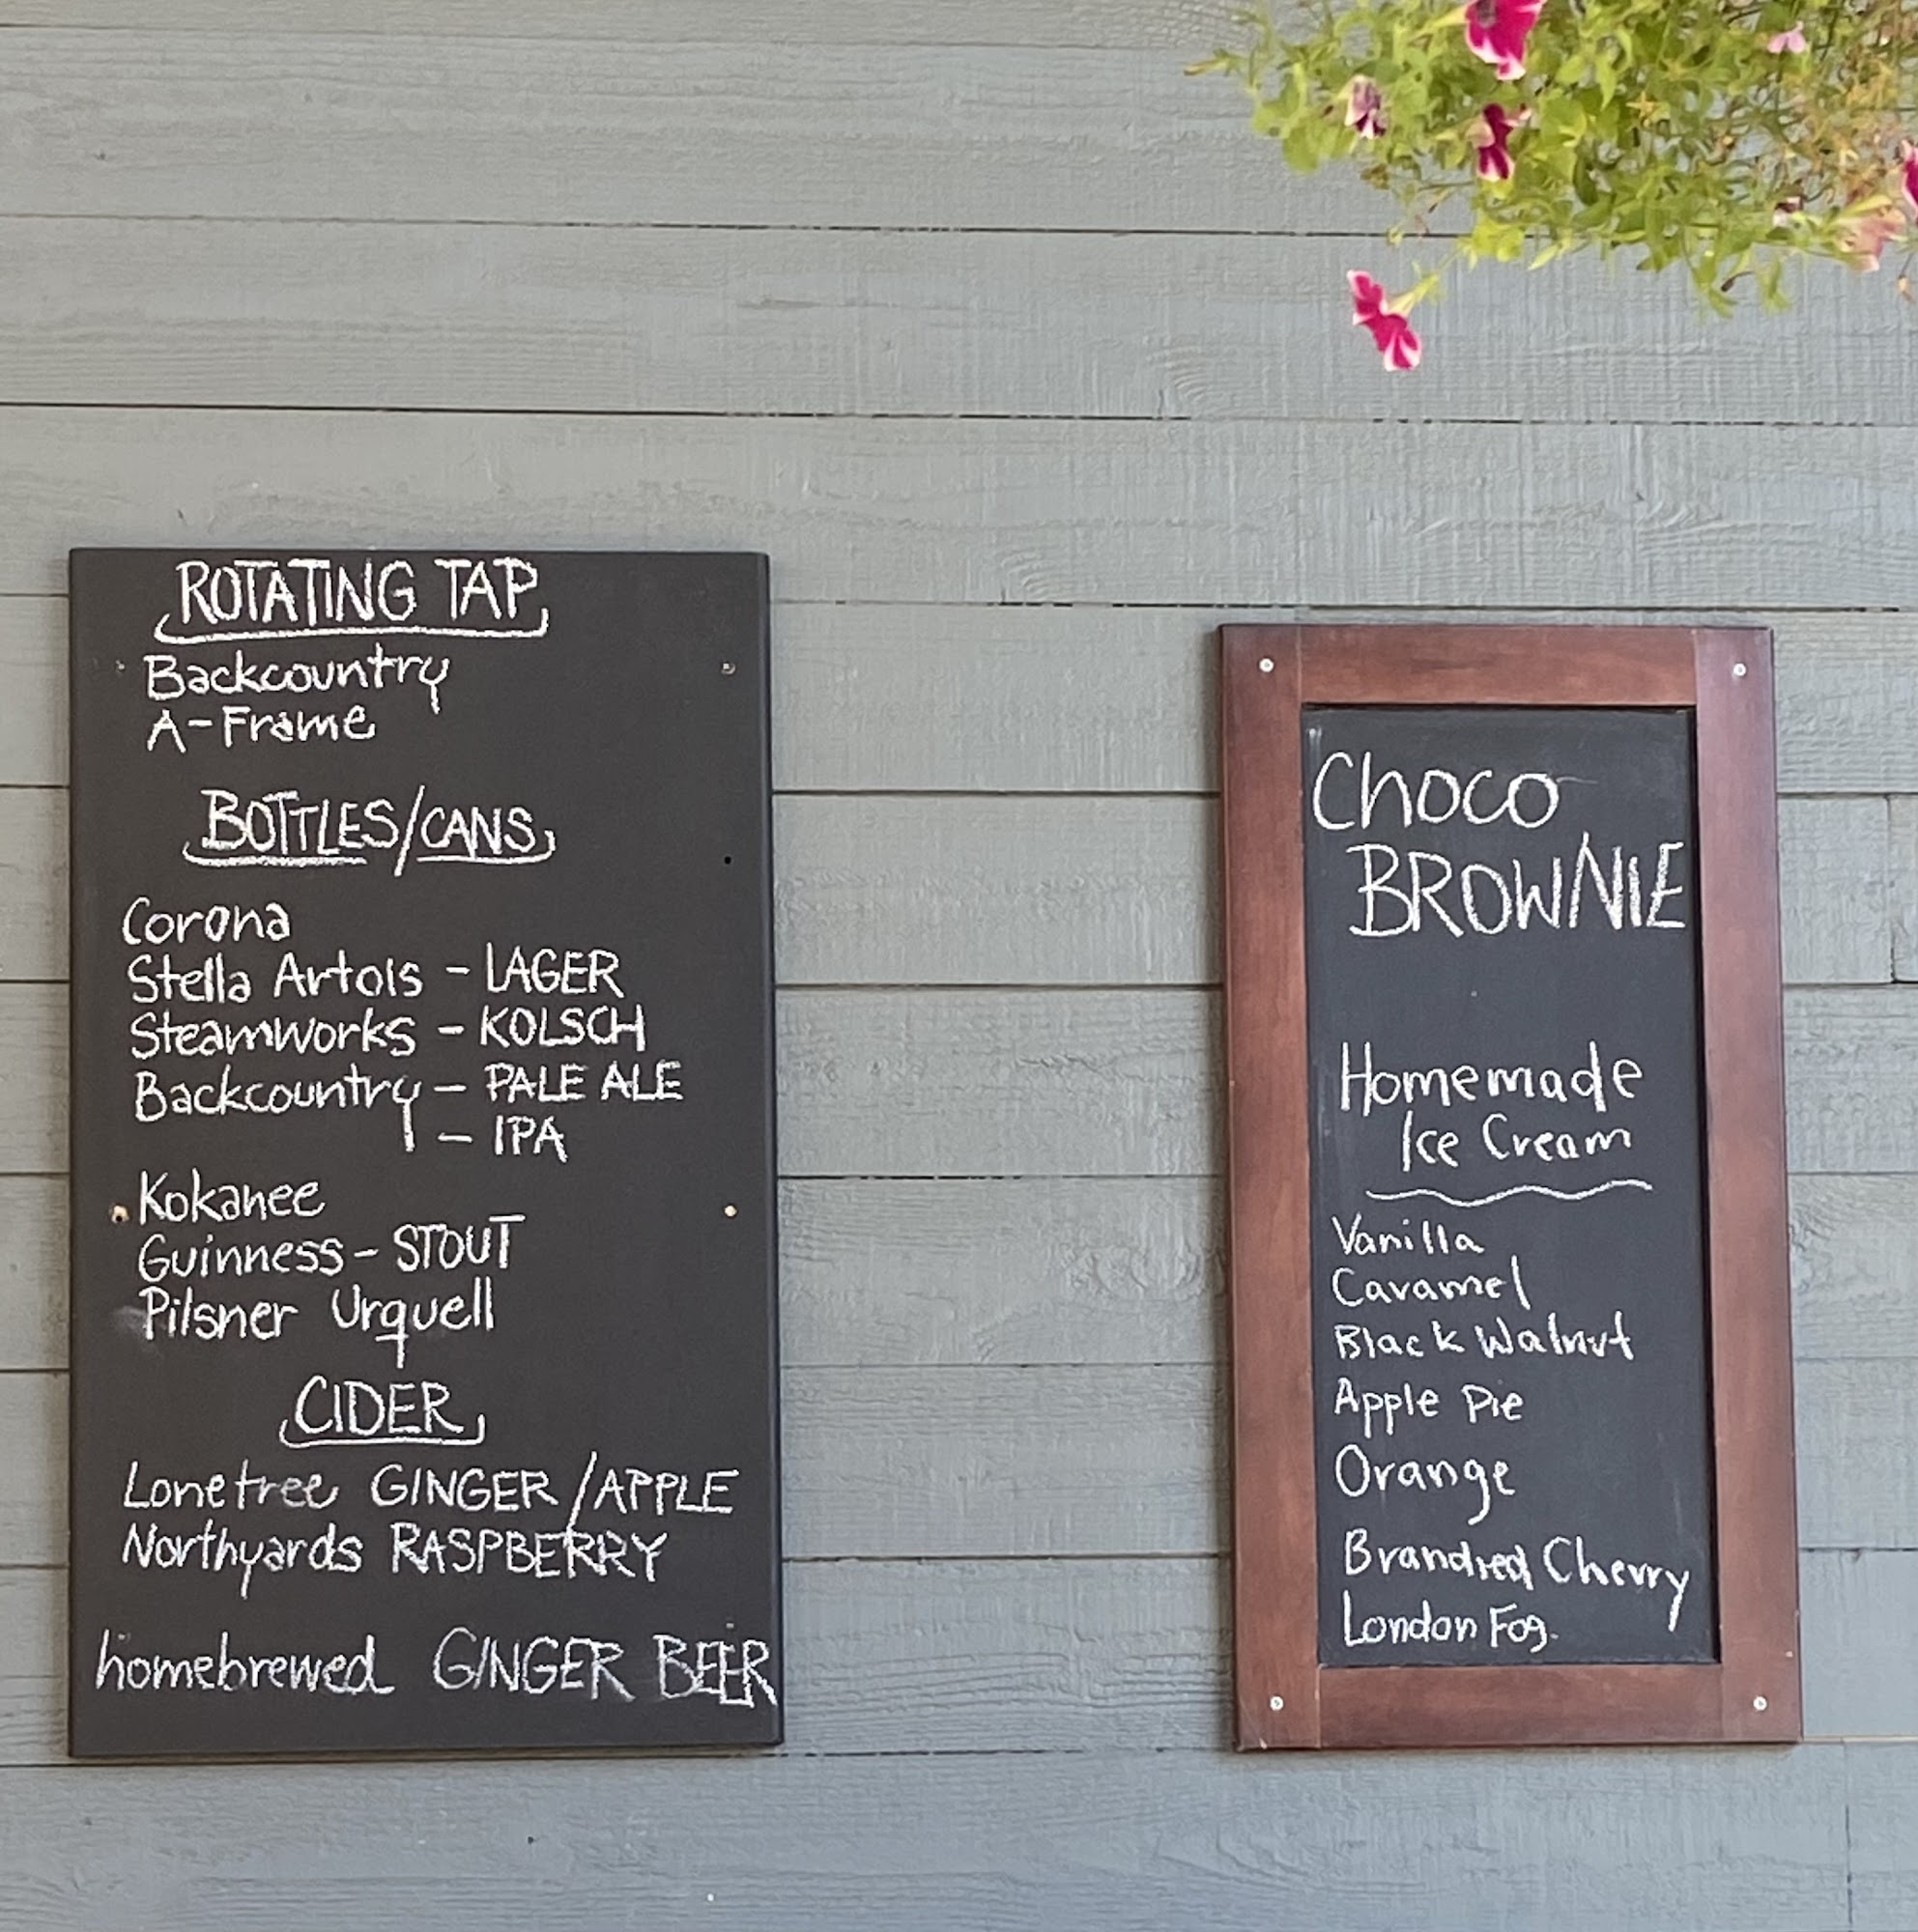 ROTATING TAP
Backcountry
A-Frame
BOTTLES/CANS
Corona
Stella Artois - LAGER
Steamworks - KOLSCH
Backcountry - PALE ALE
- IPA
Kokanee
Guinness - STOUT
Pilsner Urquell
CIDER
Lonetree GINGER/APPLE
Northyards RASPBERRY
homebrewed GINGER BEER
Choco
BROWNIE
Homemade
Ice Cream
Vanilla
Caramel
Black Walnut
Apple Pie
Orange
Brandied Cherry
London Fog